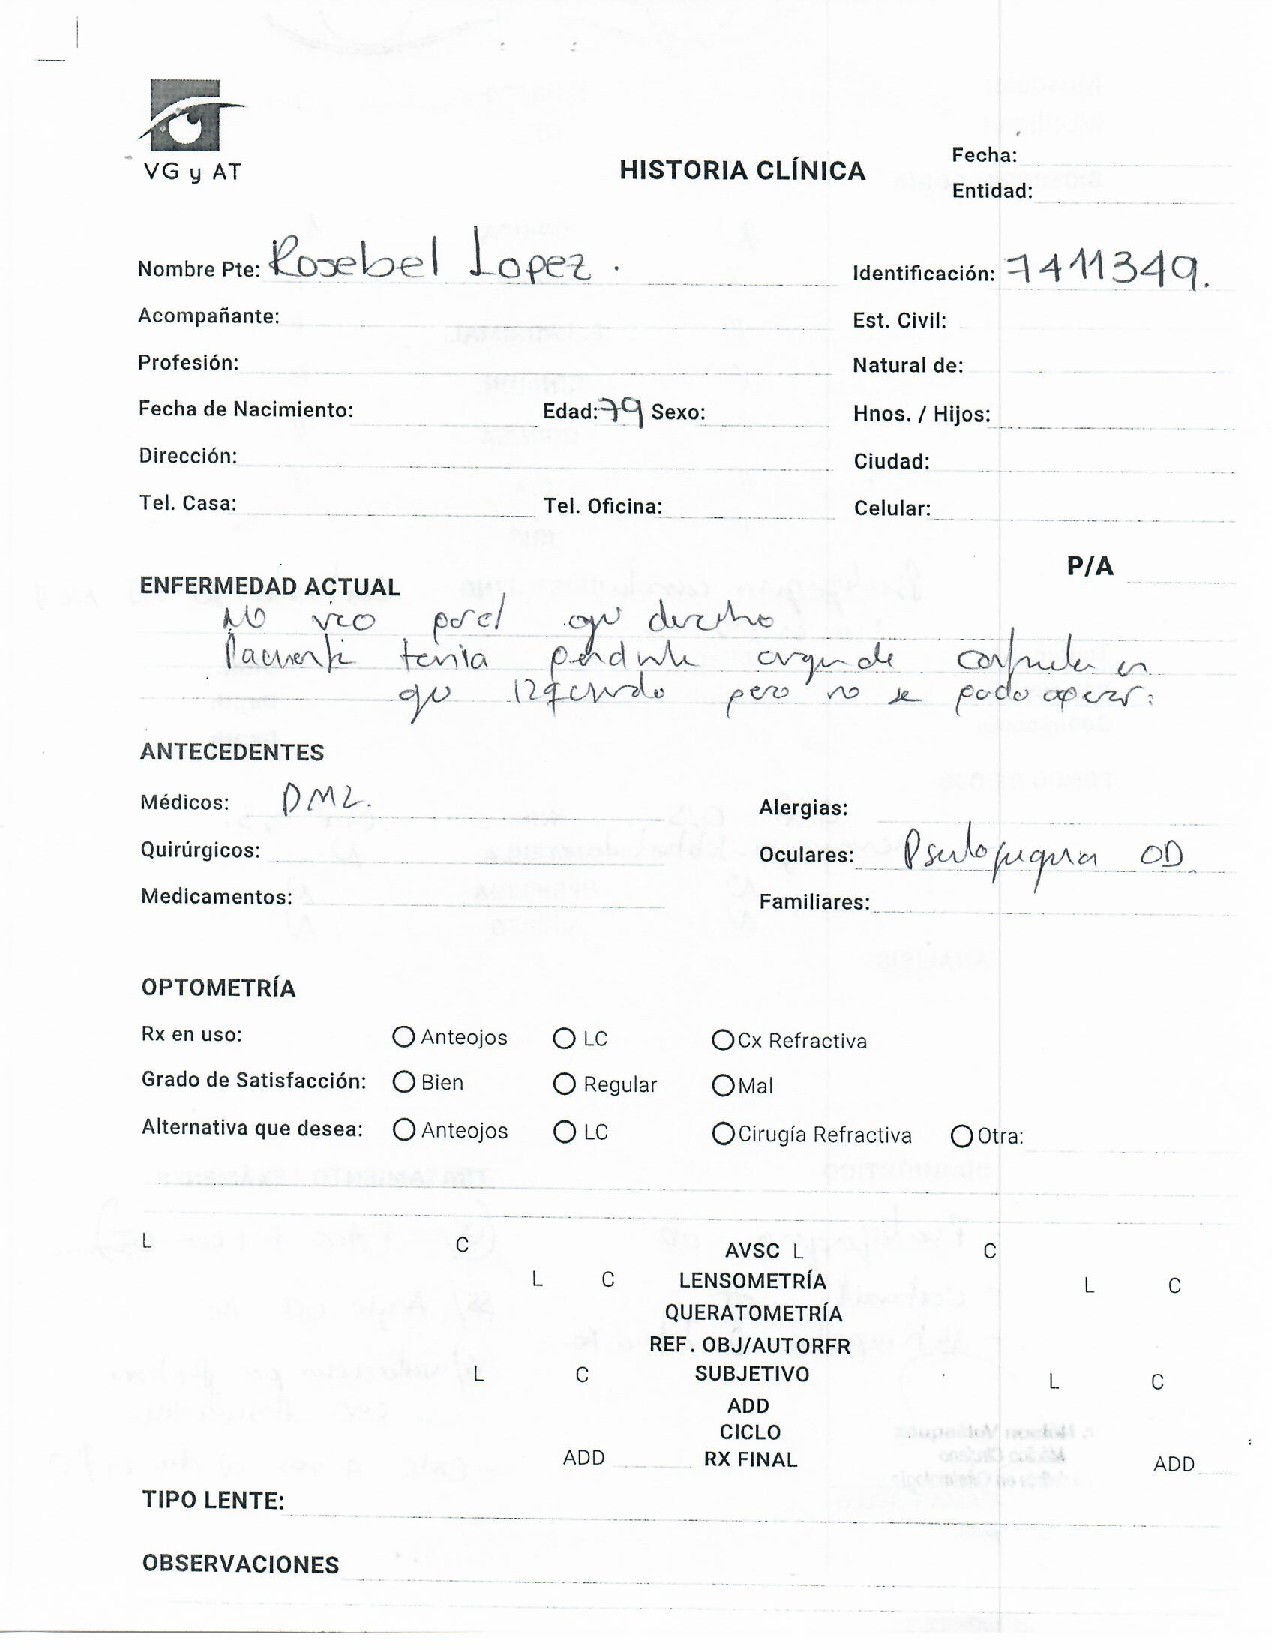 VG y AT
HISTORIA CLÍNICA
Fecha:
Entidad:
Nombre Pte: Rosebel Lopez.
Identificación: 7411349.
Acompañante:
Est. Civil:
Profesión:
Natural de:
Fecha de Nacimiento: Edad: 79 Sexo:
Hnos. / Hijos:
Dirección:
Ciudad:
Tel. Casa: Tel. Oficina:
Celular:
P/A
ENFERMEDAD ACTUAL
No veo por el ojo derecho
Paciente tenia pendiente cirugia de catarata en
ojo izquierdo pero no se pudo operar.
ANTECEDENTES
Médicos: DM2.
Alergias:
Quirúrgicos:
Oculares: OD
Medicamentos:
Familiares:
OPTOMETRÍA
Rx en uso: Anteojos LC Cx Refractiva
Grado de Satisfacción: Bien Regular Mal
Alternativa que desea: Anteojos LC Cirugía Refractiva Otra:
L C AVSC L C
L C LENSOMETRÍA L C
QUERATOMETRÍA
REF. OBJ/AUTORFR
L C SUBJETIVO L C
ADD
CICLO
ADD RX FINAL ADD
TIPO LENTE:
OBSERVACIONES